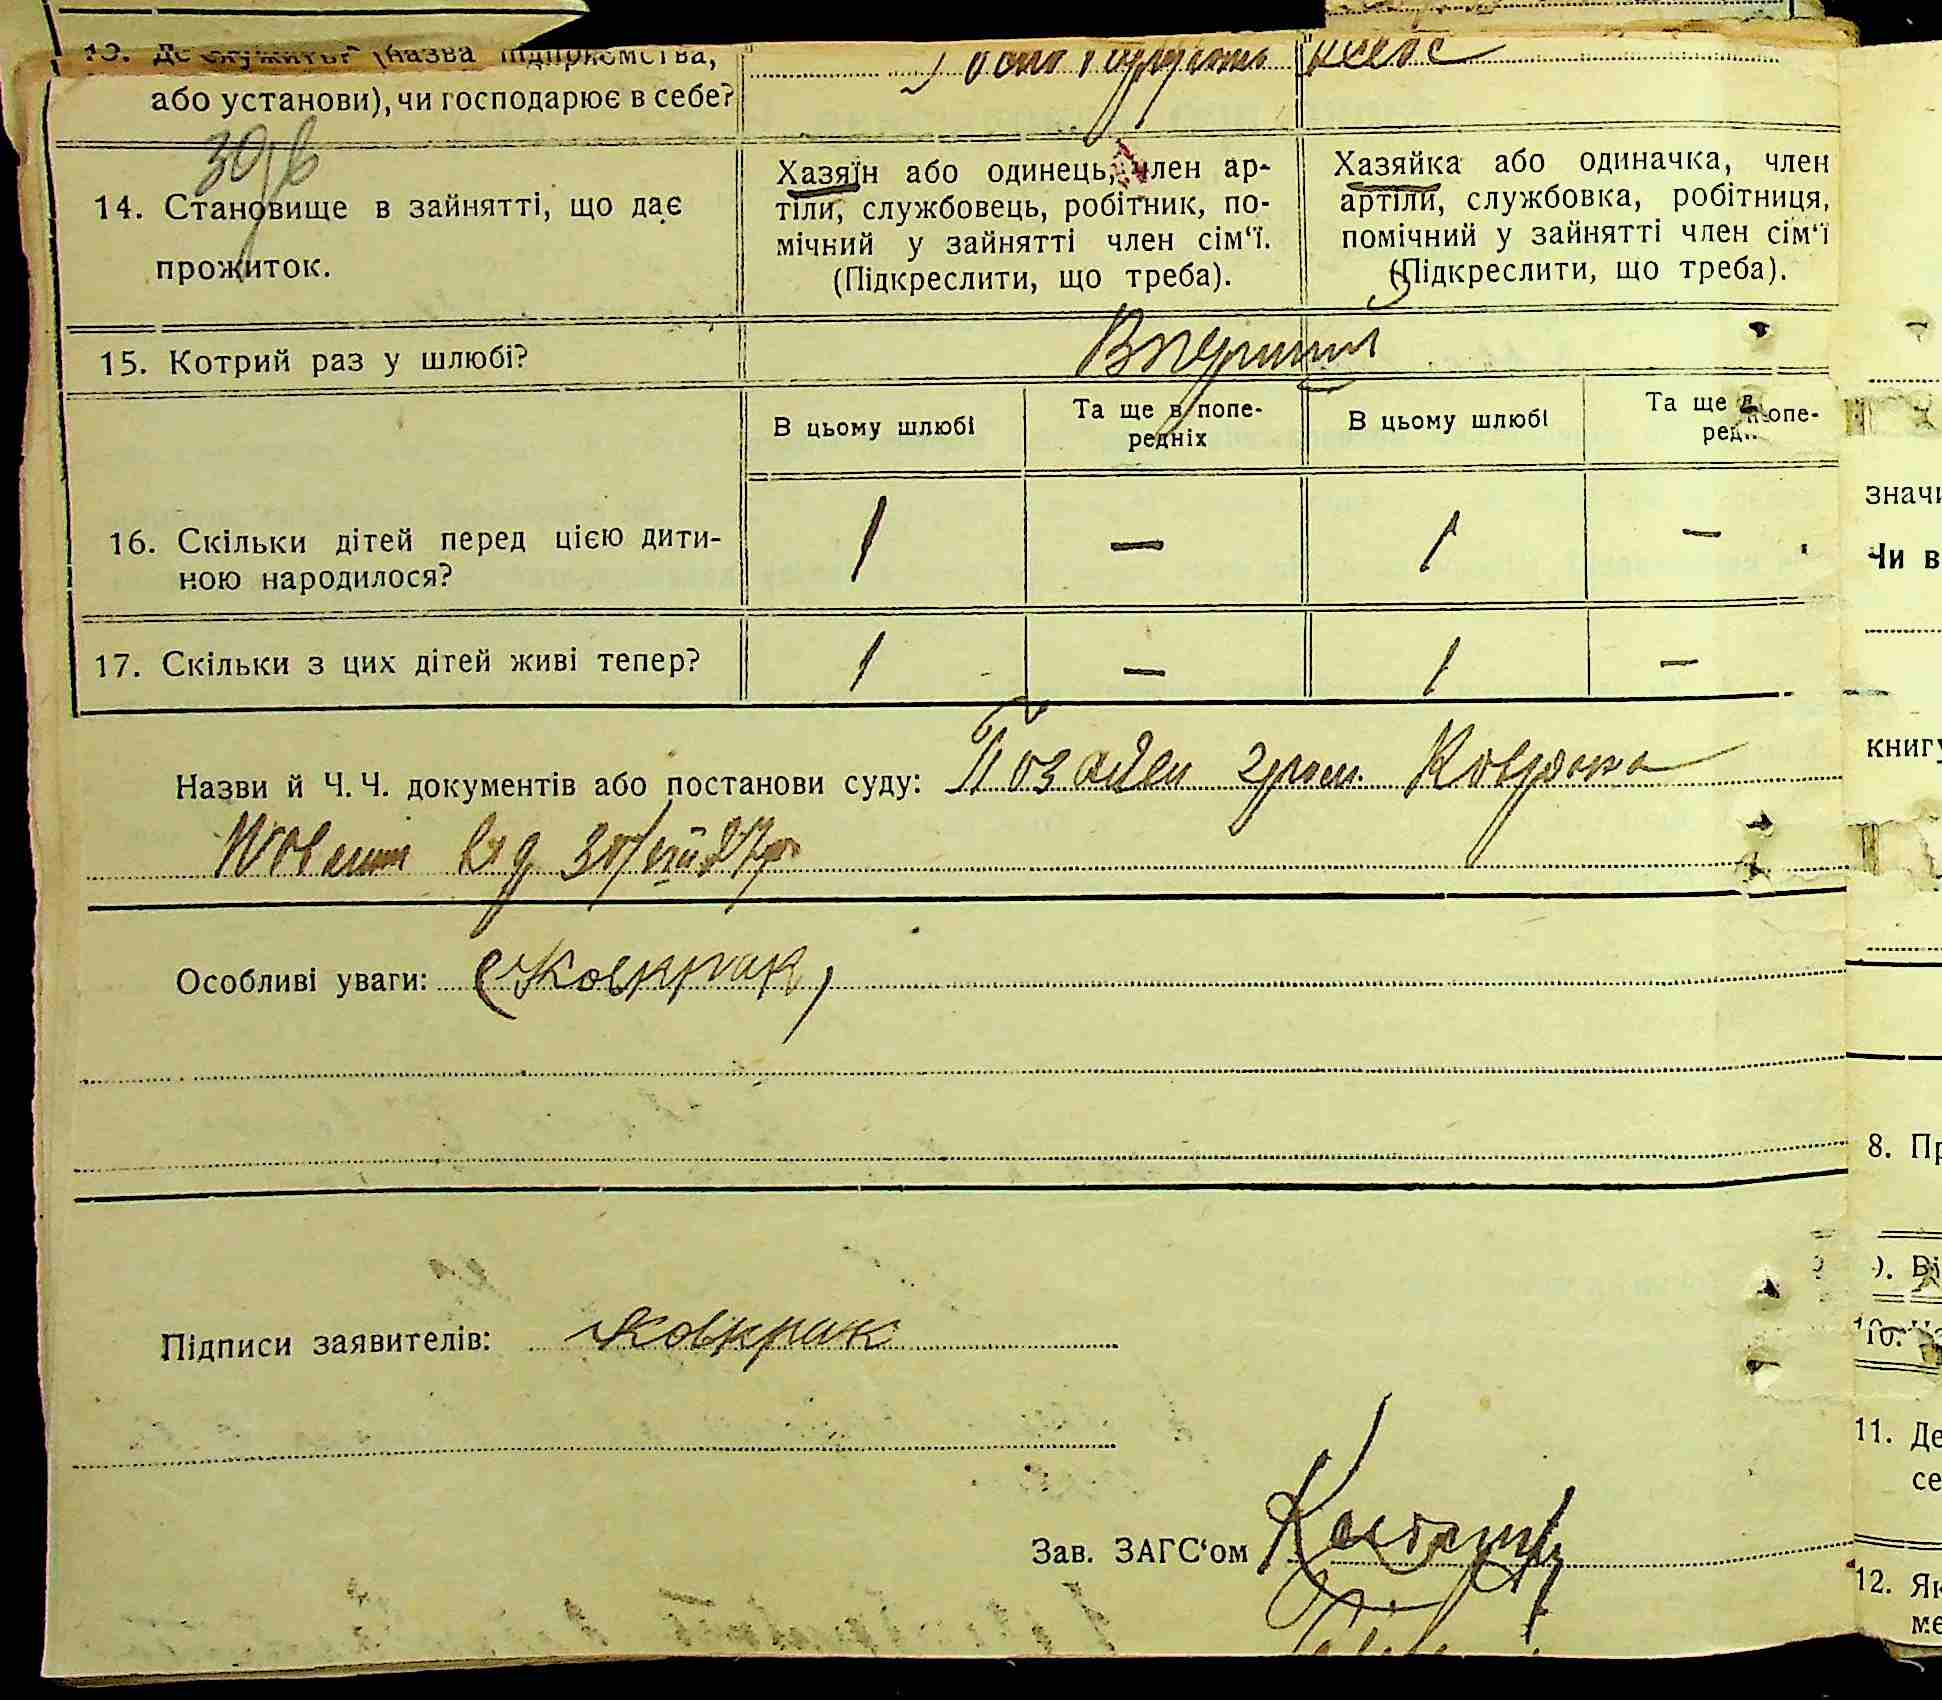 13. Де служить? (назва підприємства,
або установи), чи господарює в себе?
14. Становище в зайнятті, що дає
прожиток.
Хазяїн або одинець, член ар-
тіли, службовець, робітник, по-
мічний у зайнятті член сім‘ї.
(Підкреслити, що треба).
Хазяйка або одиначка, член
артіли, службовка, робітниця,
помічний у зайнятті член сім‘ї
(Підкреслити, що треба).
15. Котрий раз у шлюбі?
Вперше
В цьому шлюбі
Та ще в попе-
редніх
В цьому шлюбі
Та ще в попе-
редн
16. Скільки дітей перед цією дити-
ною народилося?
1 — 1 —
17. Скільки з цих дітей живі тепер?
1 — 1 —
Назви й Ч. Ч. документів або постанови суду:
від 30/VIII 27р
Особливі уваги: (Ковкрак)
Підписи заявителів: Ковкрак
Зав. ЗАГС‘ом
значи
Чи в
книгу
8. Пр
9. Ві
10.
11. Де
се
12. Як
ме